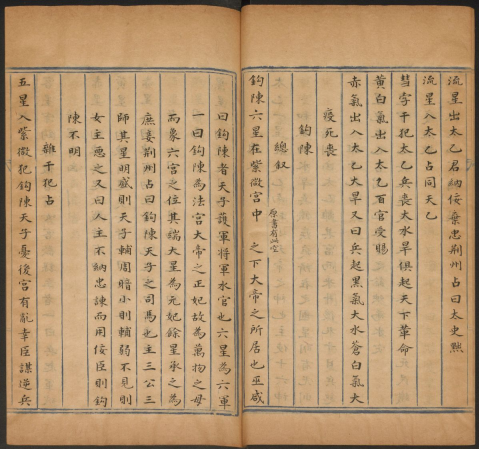 流星出太乙君納佞棄忠荆州占曰太史黙
流星入太乙占同天乙
彗孛干犯太乙兵喪大水旱俱起天下革命
黄白氣出入太乙百官受賜
赤氣出入太乙大旱又曰兵起黒氣大水蒼白氣大
疫死喪
鈎陳
總叙
鈎陳六星在紫微宫中 之下大帝之所居也巫咸
原書有此空
曰鈎陳者天子護軍將軍水官也六星為六軍
一曰鈎陳為法宫大帝之正妃故為萬物之母
而象六宫之位其端大星為元妃餘星承之為
庶妾荆州占曰鈎陳天子之司馬也主三公三
師其星明盛則天子輔周暗小則輔弱不見則
女主惡之又曰人主不納忠諫而用佞臣則鈎
陳不明
雜干犯占
五星入紫微犯鈎陳天子憂後宫有亂幸臣謀逆兵